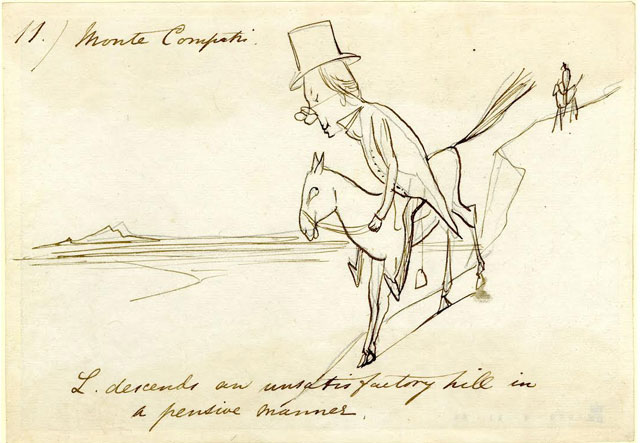 11.) Monte Compatri.
L. descends an unsatisfactory hill in
a pensive manner.